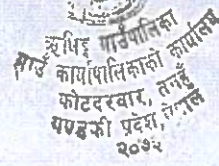 ऋषिङ्ग गाउँपालिका
गाउँ कार्यपालिकाको कार्यालय
कोटदरवार, तनहुँ
गण्डकी प्रदेश, नेपाल
२०७३